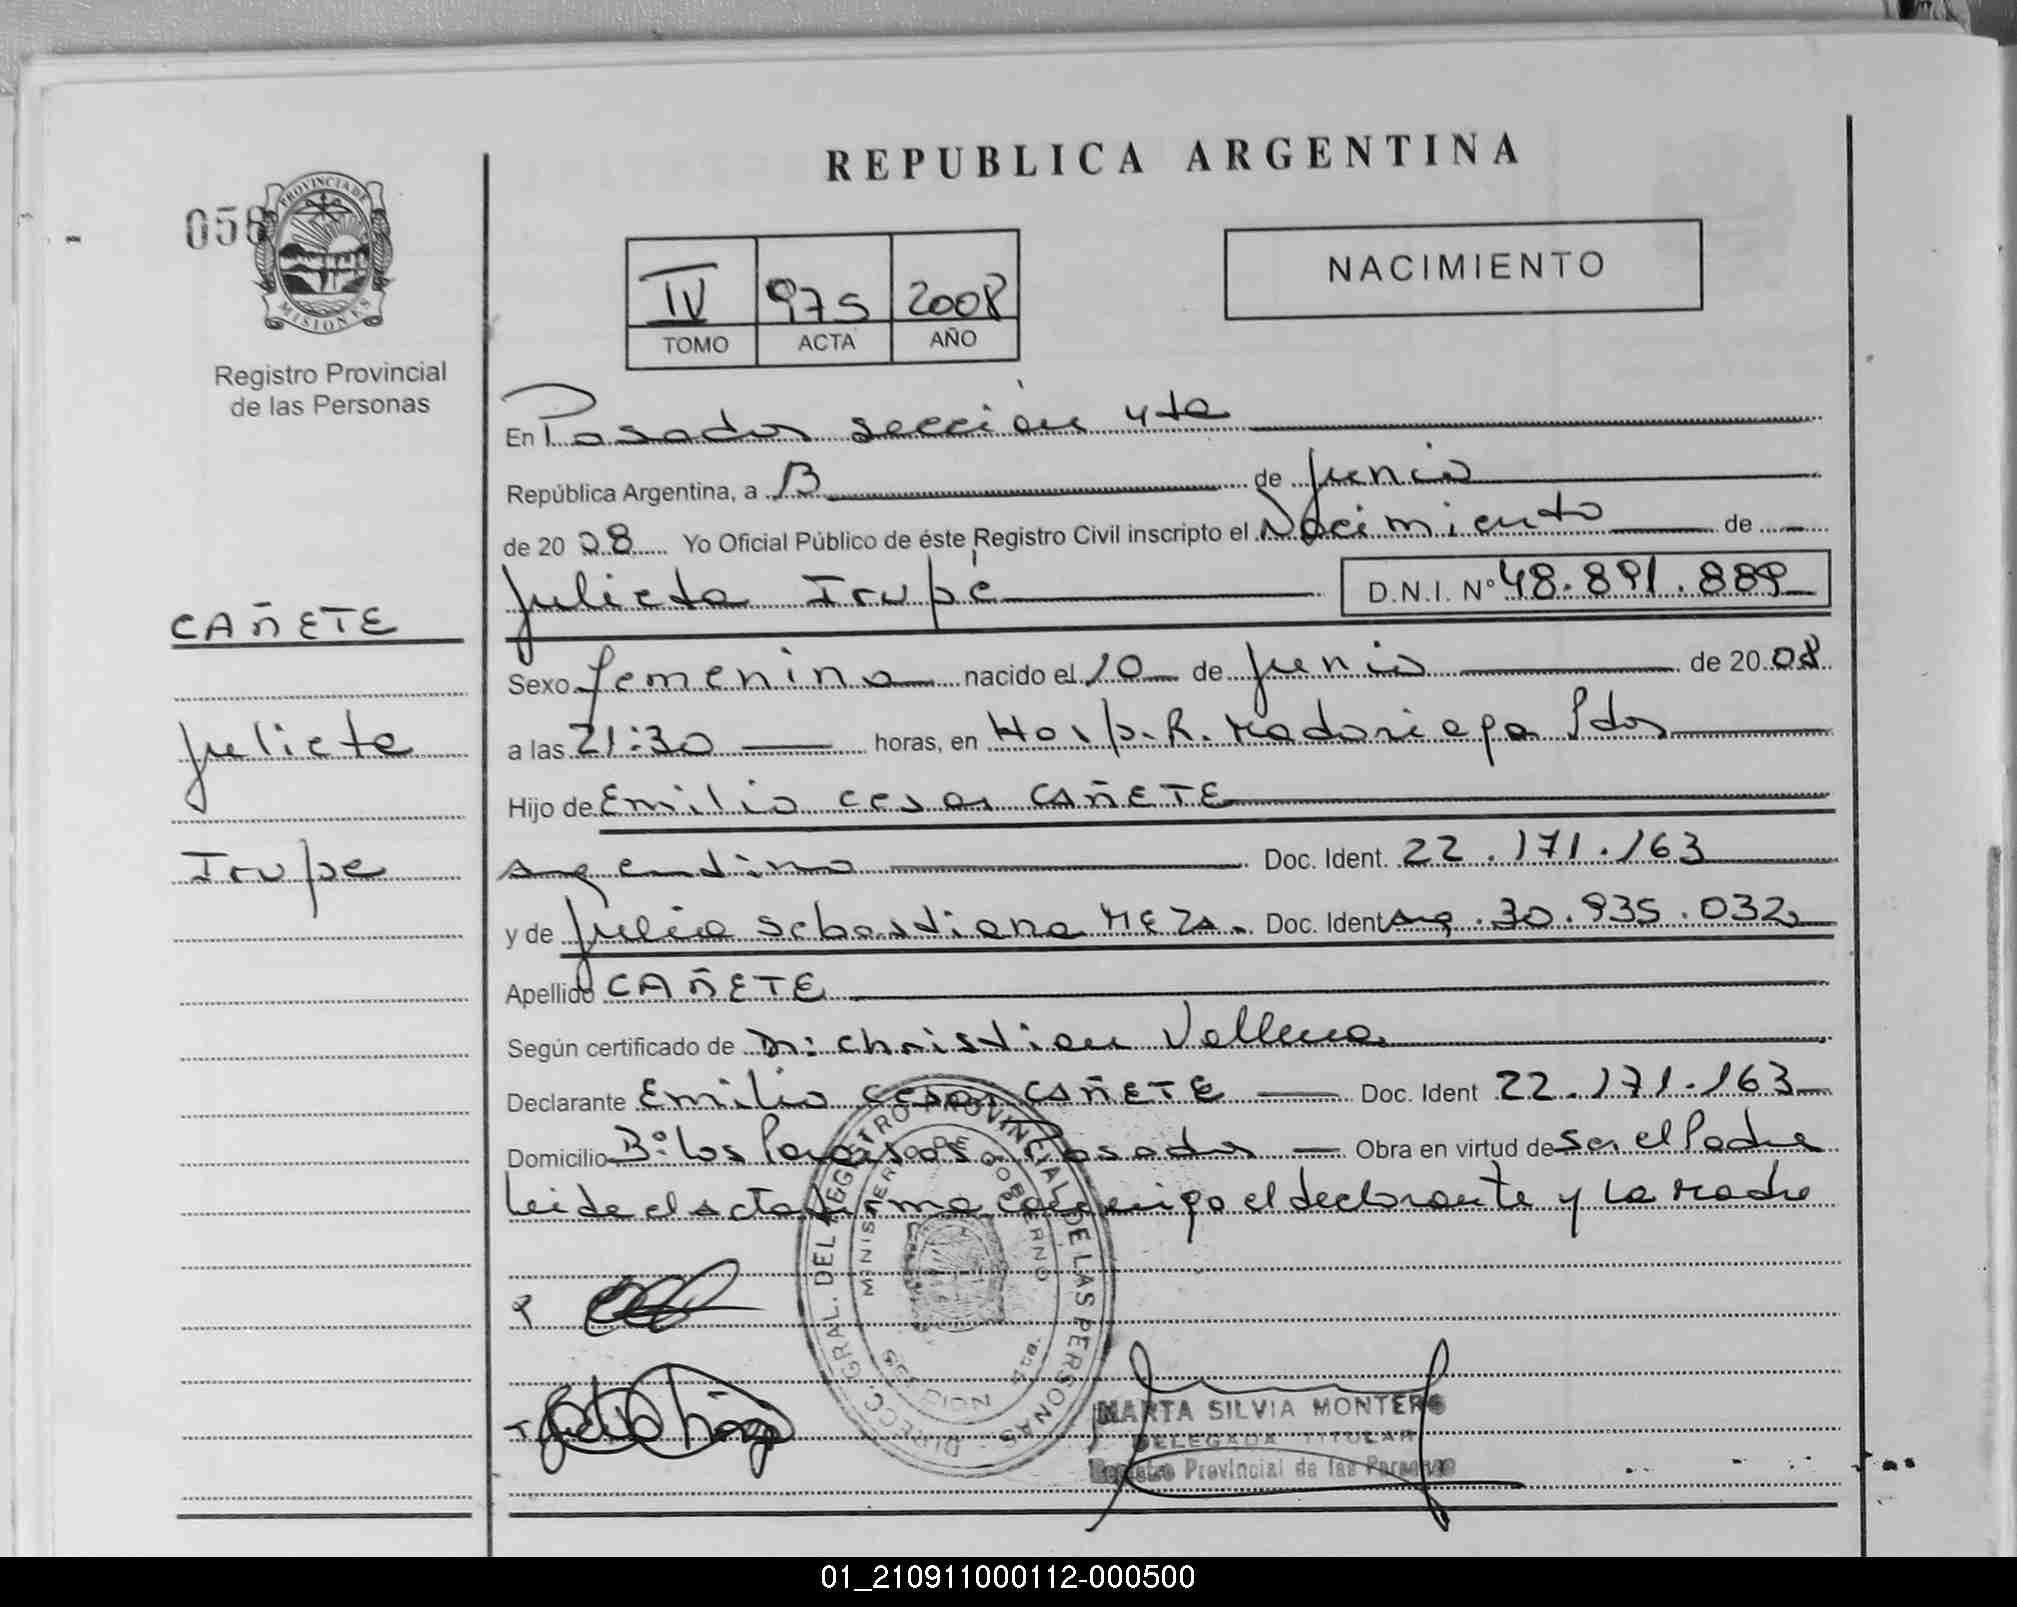 REPUBLICA ARGENTINA
056
PROVINCIA DE
MISIONES
Registro Provincial
de las Personas
IV 975 2008
TOMO ACTA AÑO
NACIMIENTO
En Posadas sección 4ta
República Argentina, a 13 de Junio
de 20 08 Yo Oficial Público de éste Registro Civil inscripto el Nacimiento de
Julieta Irupé D.N.I. Nº 48.891.889
CAÑETE
Julieta
Irupe
Sexo femenino nacido el 10 de Junio de 20 08
a las 21:30 horas, en Hosp. R. Madariaga Pdas
Hijo de Emilio cesar CAÑETE
Argentino Doc. Ident. 22.171.163
y de Julia Sebastiana MEZA. Doc. Ident Arg. 30.935.032
Apellido CAÑETE
Según certificado de Dr: Christian
Declarante Emilio cesar CAÑETE Doc. Ident 22.171.163
Domicilio Bº: Los Paraisos Posadas Obra en virtud de Ser el Padre
Leida el acta firma conmigo el declarante y la Madre
DIRECC. GRAL. DEL REGISTRO PROVINCIAL DE LAS PERSONAS
MINISTERIO DE GOBIERNO
4ta.
MARTA SILVIA MONTERO
DELEGADA TITULAR
Registro Provincial de las Personas
01_210911000112-000500